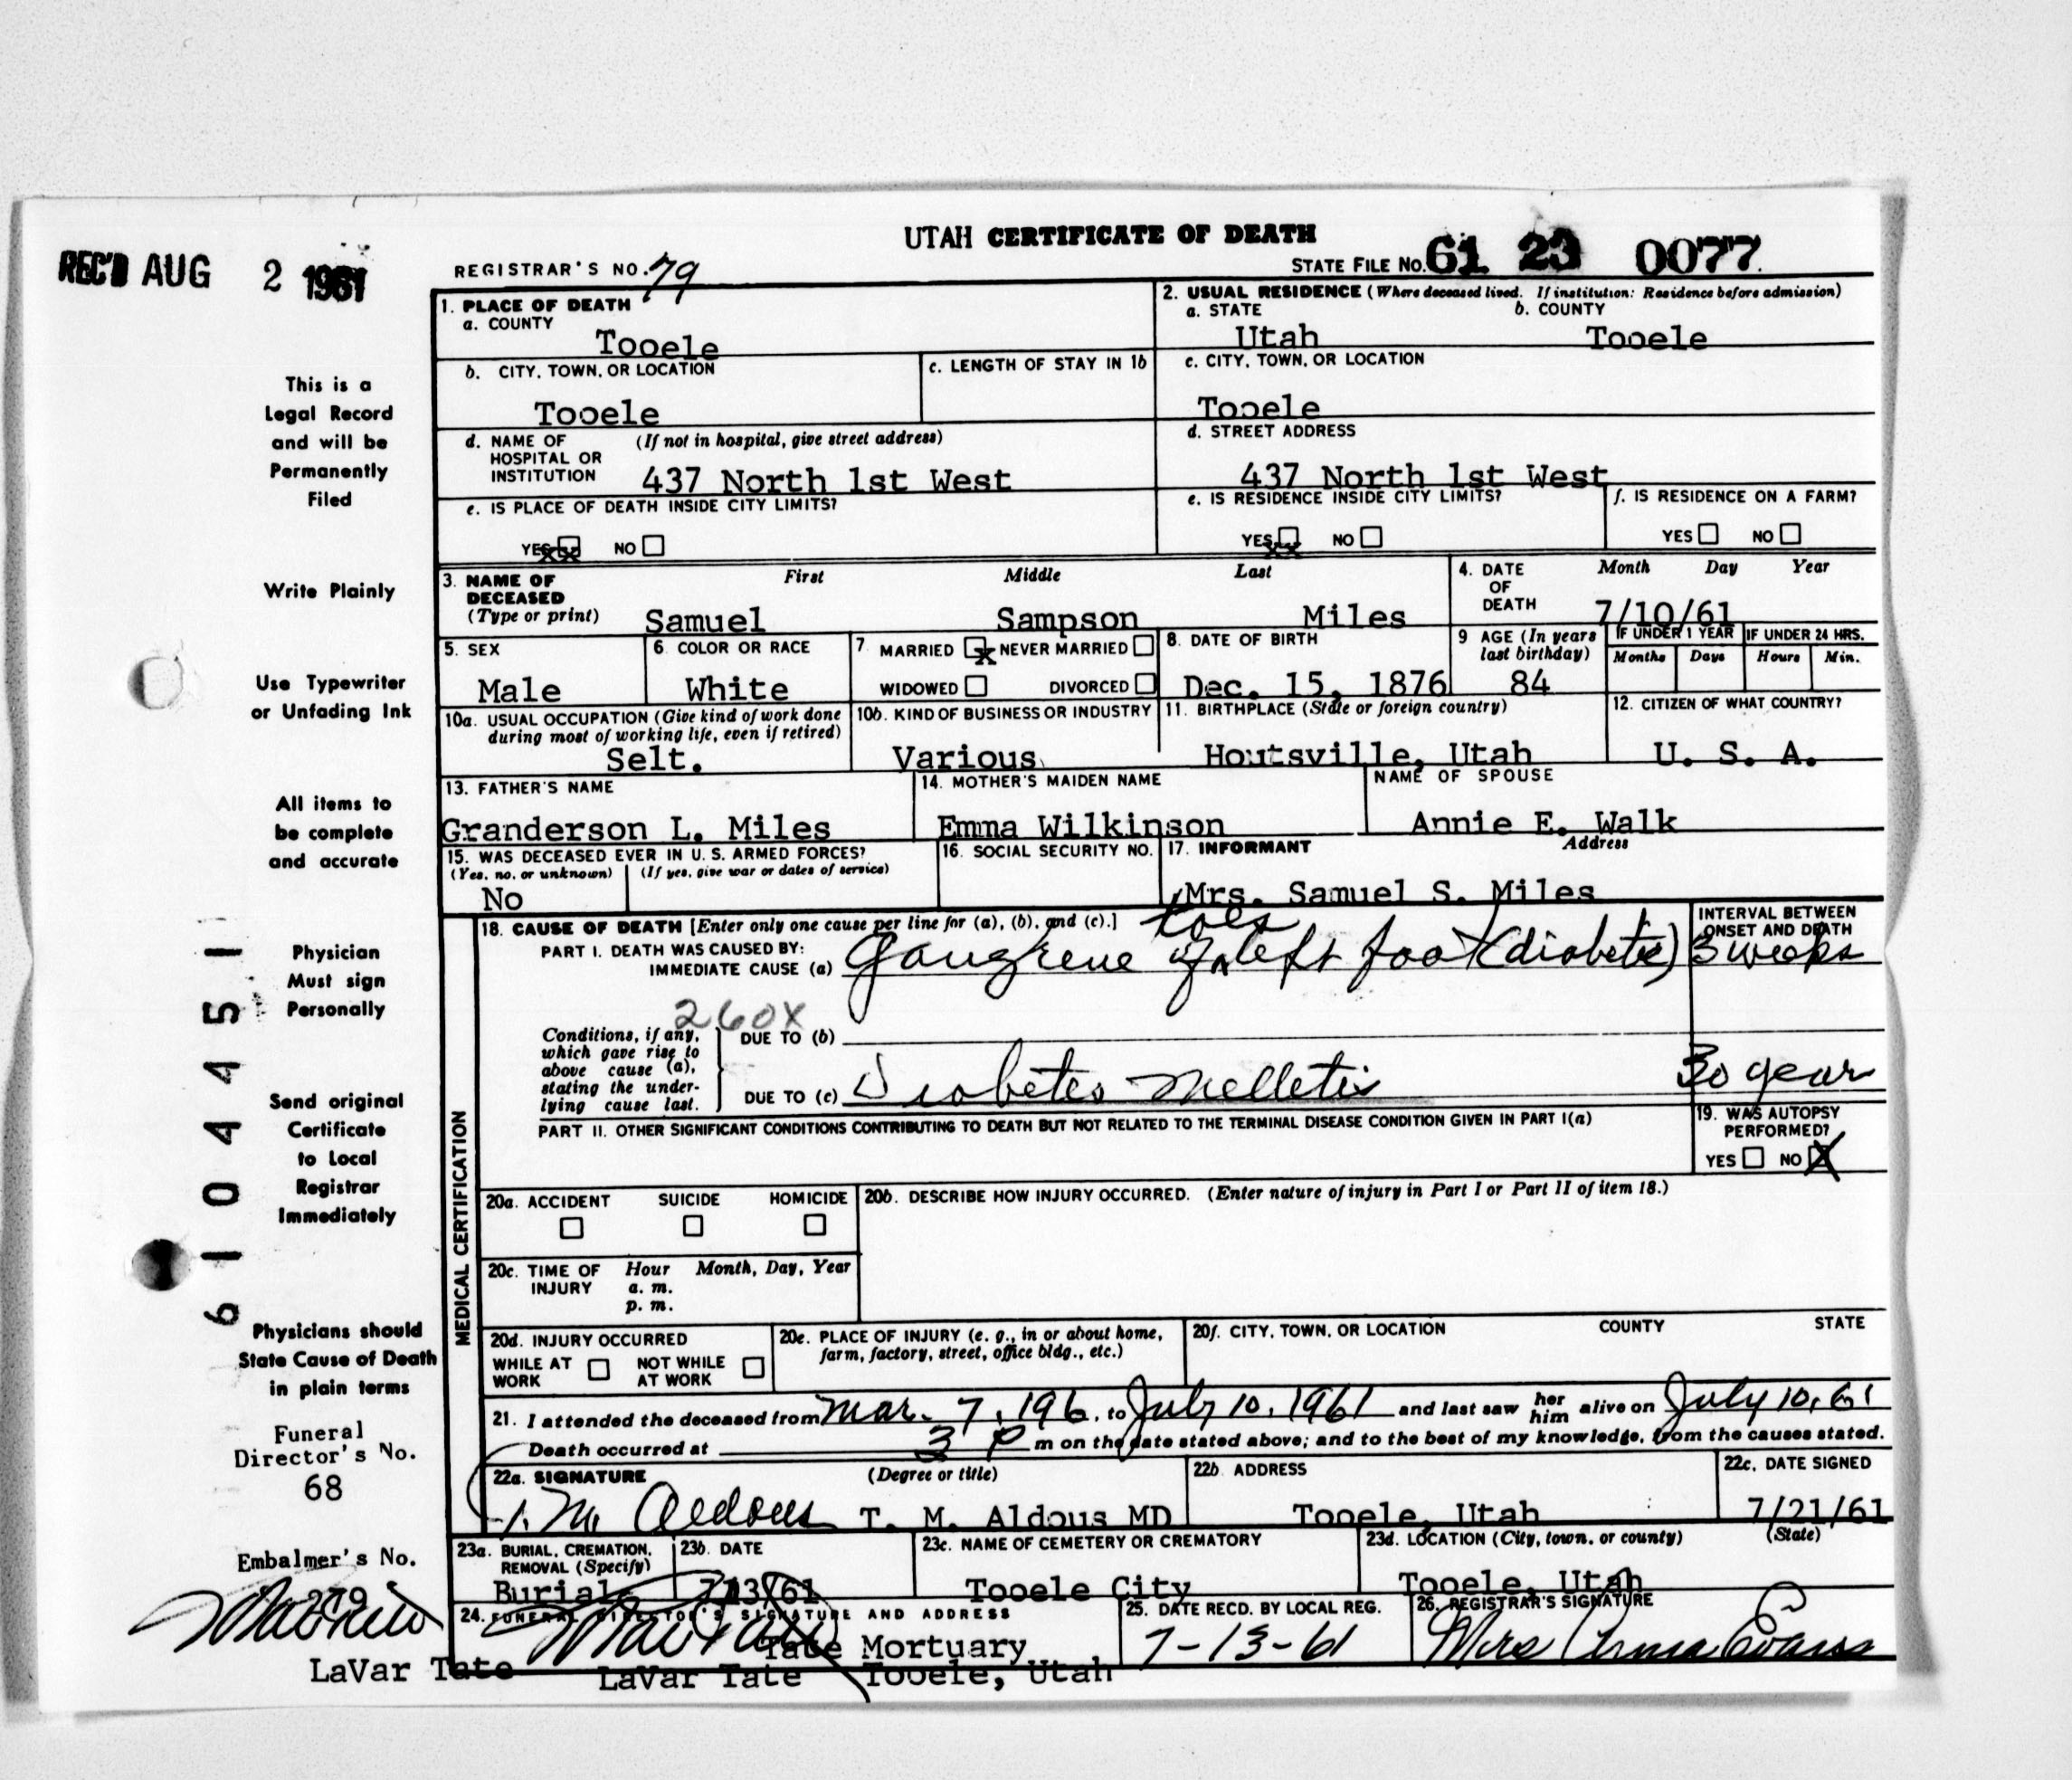 UTAH CERTIFICATE OF DEATH
REC'D AUG 2 1961
REGISTRAR'S NO. 79
STATE FILE NO. 61 23 0077
1. PLACE OF DEATH
a. COUNTY
Tooele
2. USUAL RESIDENCE (Where deceased lived. If institution: Residence before admission)
a. STATE b. COUNTY
Utah Tooele
b. CITY, TOWN, OR LOCATION
Tooele
c. LENGTH OF STAY IN 1b
c. CITY, TOWN, OR LOCATION
Tooele
d. NAME OF HOSPITAL OR INSTITUTION (If not in hospital, give street address)
437 North 1st West
d. STREET ADDRESS
437 North 1st West
e. IS PLACE OF DEATH INSIDE CITY LIMITS?
YES xx NO
e. IS RESIDENCE INSIDE CITY LIMITS?
YES xx NO
f. IS RESIDENCE ON A FARM?
YES NO
3. NAME OF DECEASED (Type or print)
First Middle Last
Samuel Sampson Miles
4. DATE OF DEATH
Month Day Year
7/10/61
5. SEX
Male
6. COLOR OR RACE
White
7. MARRIED x NEVER MARRIED
WIDOWED DIVORCED
8. DATE OF BIRTH
Dec. 15, 1876
9 AGE (In years last birthday)
84
IF UNDER 1 YEAR
Months Days
IF UNDER 24 HRS.
Hours Min.
10a. USUAL OCCUPATION (Give kind of work done during most of working life, even if retired)
Selt.
10b. KIND OF BUSINESS OR INDUSTRY
Various
11. BIRTHPLACE (State or foreign country)
Hoytsville, Utah
12. CITIZEN OF WHAT COUNTRY?
U. S. A.
13. FATHER'S NAME
Granderson L. Miles
14. MOTHER'S MAIDEN NAME
Emma Wilkinson
NAME OF SPOUSE
Annie E. Walk
15. WAS DECEASED EVER IN U. S. ARMED FORCES?
(Yes, no, or unknown) (If yes, give war or dates of service)
No
16. SOCIAL SECURITY NO.
17. INFORMANT Address
Mrs. Samuel S. Miles
MEDICAL CERTIFICATION
18. CAUSE OF DEATH [Enter only one cause per line for (a), (b), and (c).]
PART I. DEATH WAS CAUSED BY:
IMMEDIATE CAUSE (a) Gangrene of toes left foot (diabetic)
INTERVAL BETWEEN ONSET AND DEATH
3 weeks
260X
Conditions, if any, which gave rise to above cause (a), stating the underlying cause last.
DUE TO (b)
DUE TO (c) Diabetes Melletis
30 year
PART II. OTHER SIGNIFICANT CONDITIONS CONTRIBUTING TO DEATH BUT NOT RELATED TO THE TERMINAL DISEASE CONDITION GIVEN IN PART I(a)
19. WAS AUTOPSY PERFORMED?
YES NO X
20a. ACCIDENT SUICIDE HOMICIDE
20b. DESCRIBE HOW INJURY OCCURRED. (Enter nature of injury in Part I or Part II of item 18.)
20c. TIME OF INJURY Hour Month, Day, Year
a. m.
p. m.
20d. INJURY OCCURRED
WHILE AT WORK NOT WHILE AT WORK
20e. PLACE OF INJURY (e. g., in or about home, farm, factory, street, office bldg., etc.)
20f. CITY, TOWN, OR LOCATION COUNTY STATE
21. I attended the deceased from Mar. 7, 196, to July 10, 1961 and last saw her him alive on July 10, 61
Death occurred at 3 P m on the date stated above; and to the best of my knowledge, from the causes stated.
22a. SIGNATURE (Degree or title)
T. M. Aldous T. M. Aldous MD
22b ADDRESS
Tooele, Utah
22c. DATE SIGNED
7/21/61
23a. BURIAL, CREMATION, REMOVAL (Specify)
Burial
23b. DATE
7/13/61
23c. NAME OF CEMETERY OR CREMATORY
Tooele City
23d. LOCATION (City, town, or county) (State)
Tooele, Utah
24. FUNERAL DIRECTOR'S SIGNATURE AND ADDRESS
Tate Mortuary
LaVar Tate Tooele, Utah
25. DATE RECD. BY LOCAL REG.
7-13-61
26. REGISTRAR'S SIGNATURE
Mrs Evans
This is a
Legal Record
and will be
Permanently
Filed
Write Plainly
Use Typewriter
or Unfading Ink
All items to
be complete
and accurate
Physician
Must sign
Personally
Send original
Certificate
to Local
Registrar
Immediately
Physicians should
State Cause of Death
in plain terms
Funeral
Director's No.
68
Embalmer's No.
279
LaVar Tate
61 04451